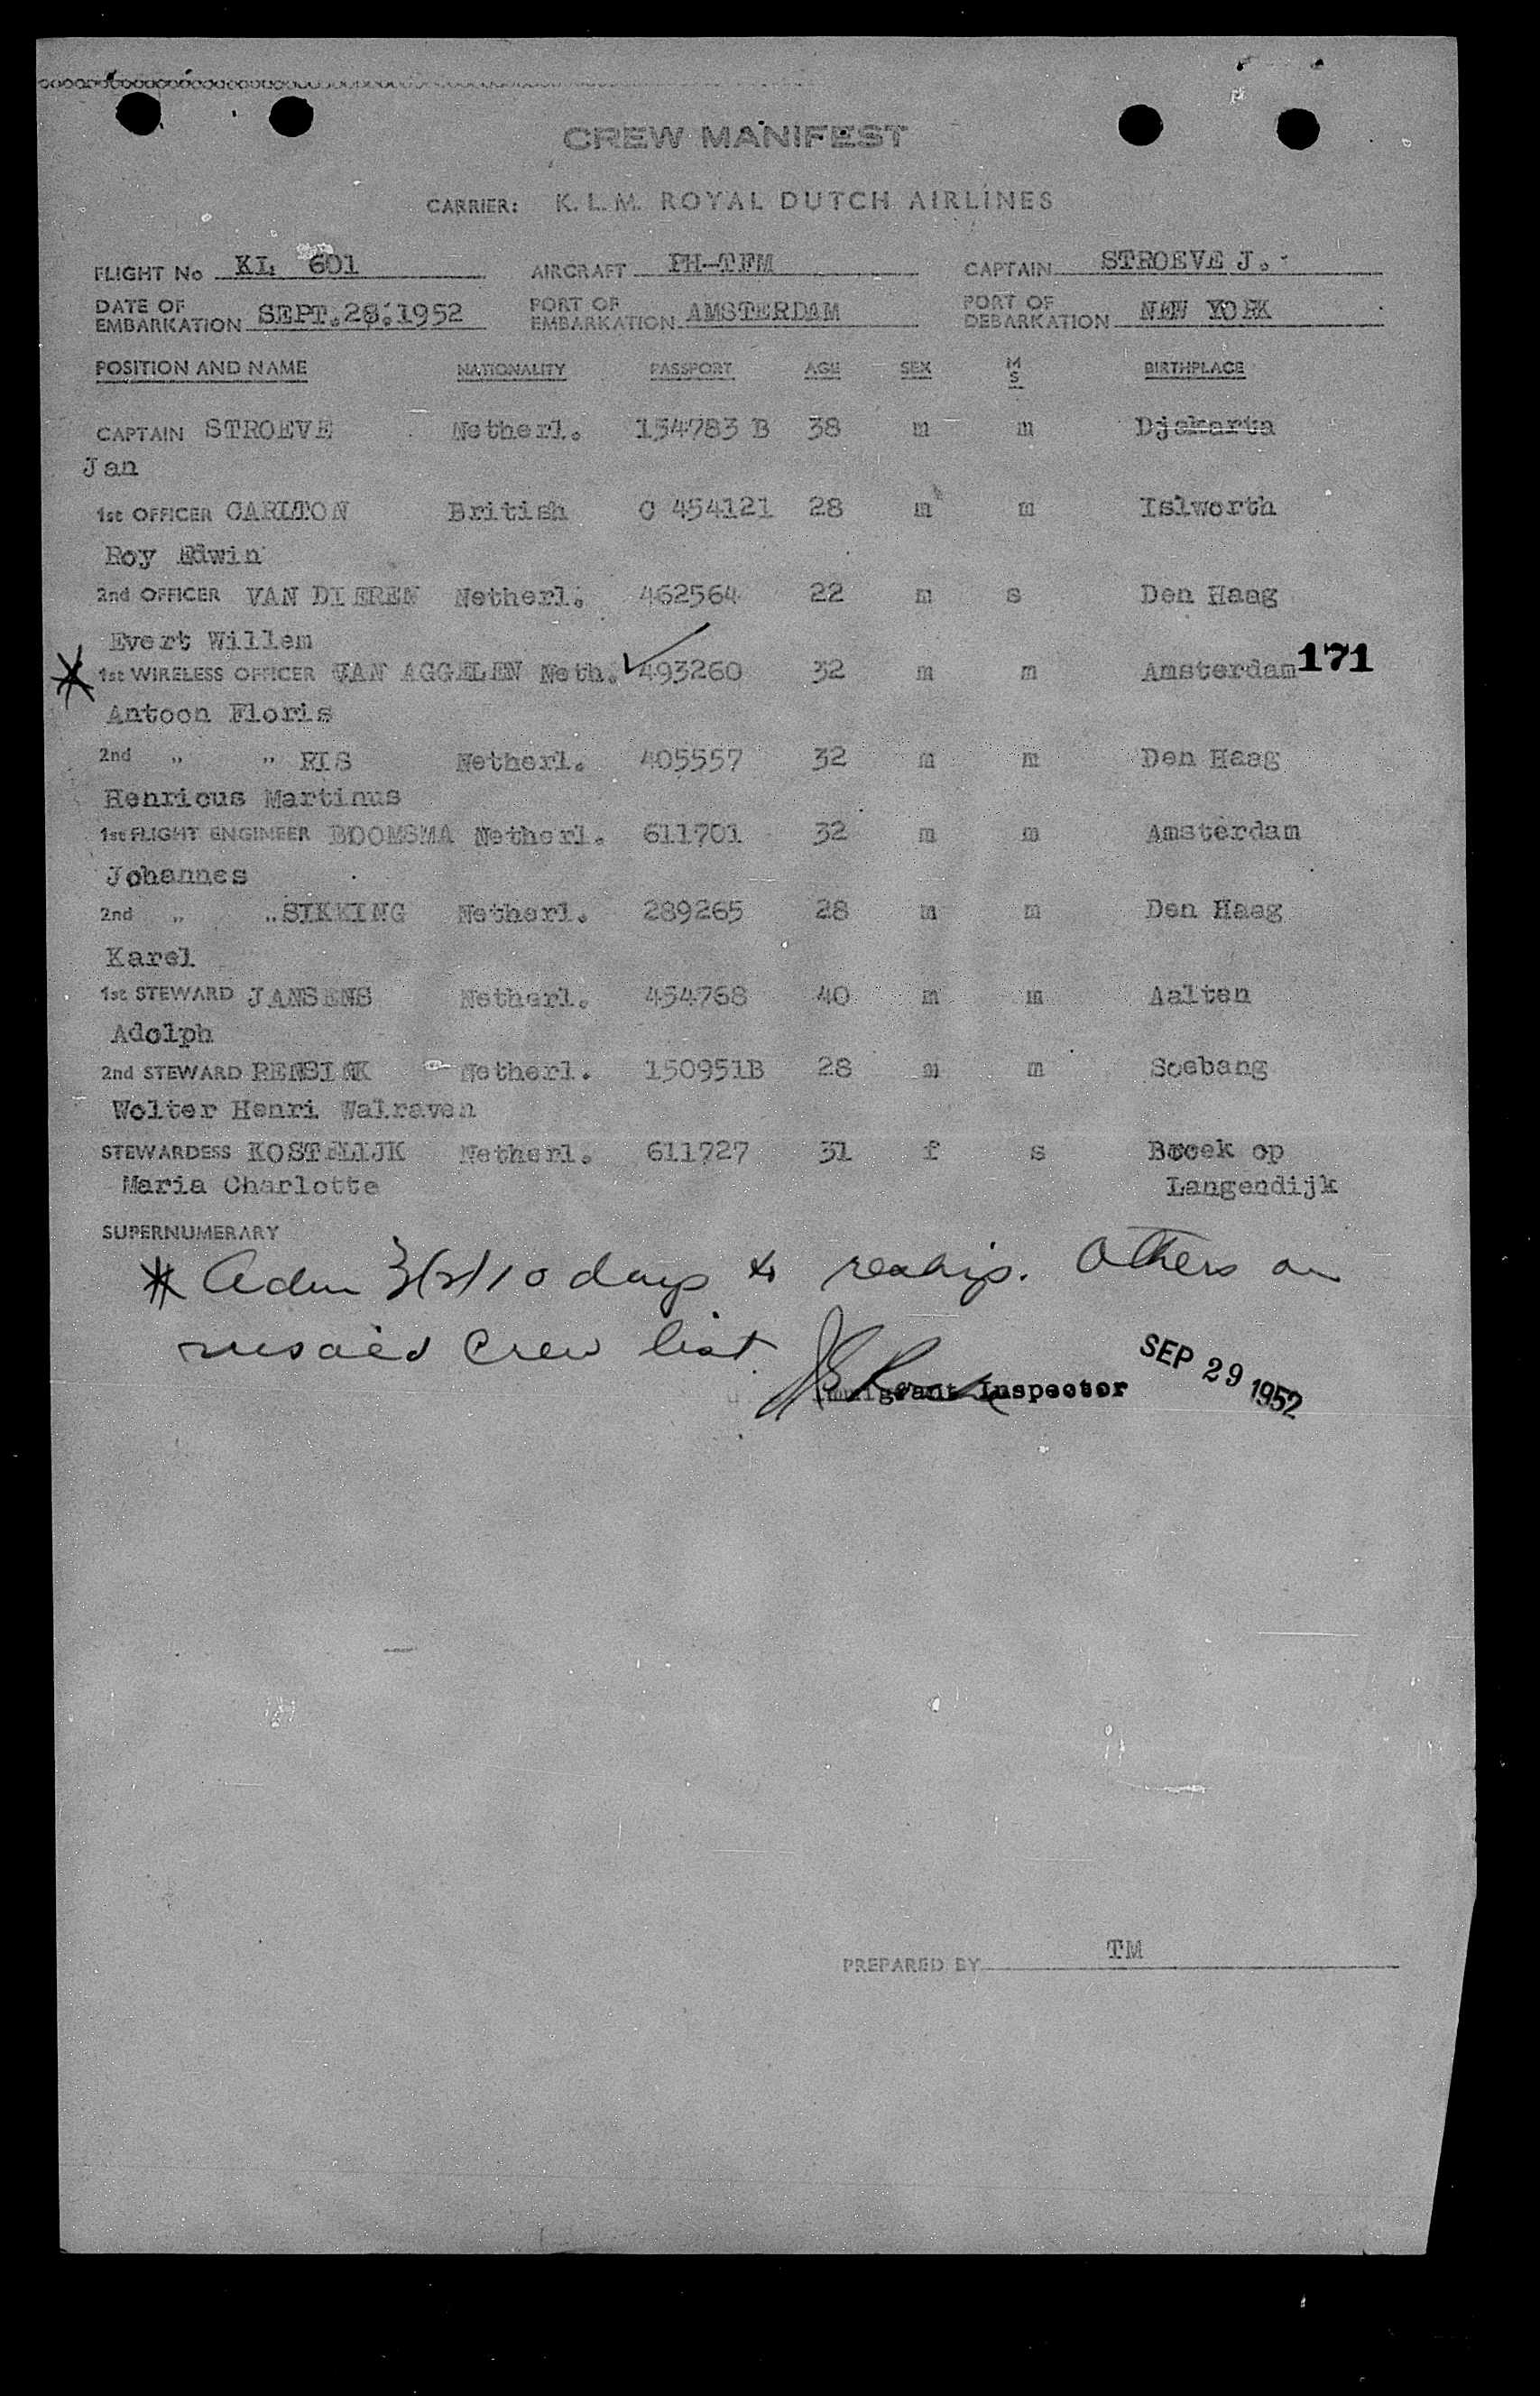 CREW MANIFEST
CARRIER: K.L.M. ROYAL DUTCH AIRLINES
FLIGHT No KL 601 AIRCRAFT PH-TFM CAPTAIN STROEVE J.
DATE OF EMBARKATION SEPT.28.1952 PORT OF EMBARKATION AMSTERDAM PORT OF DEBARKATION NEW YORK
POSITION AND NAME NATIONALITY PASSPORT AGE SEX M S BIRTHPLACE
CAPTAIN STROEVE Netherl. 154783 B 38 m m Djakarta
Jan
1st OFFICER CARLTON British C 454121 28 m m Islworth
Roy Edwin
2nd OFFICER VAN DIEREN Netherl. 462564 22 m s Den Haag
Evert Willem
* 1st WIRELESS OFFICER VAN AGGELEN Neth. ✓ 493260 32 m m Amsterdam 171
Antoon Floris
2nd " " RIS Netherl. 405557 32 m m Den Haag
Henricus Martinus
1st FLIGHT ENGINEER BOOMSMA Netherl. 611701 32 m m Amsterdam
Johannes
2nd " " SIKKING Netherl. 289265 28 m m Den Haag
Karel
1st STEWARD JANSENS Netherl. 454768 40 m m Aalten
Adolph
2nd STEWARD RENSINK Netherl. 150951B 28 m m Soebang
Wolter Henri Walraven
STEWARDESS KOSTELIJK Netherl. 611727 31 f s Broek op
Maria Charlotte Langendijk
SUPERNUMERARY
* Adm 3(5) 10 days to reship. Others on
visaed Crew list
Immigrant Inspector SEP 29 1952
PREPARED BY TM